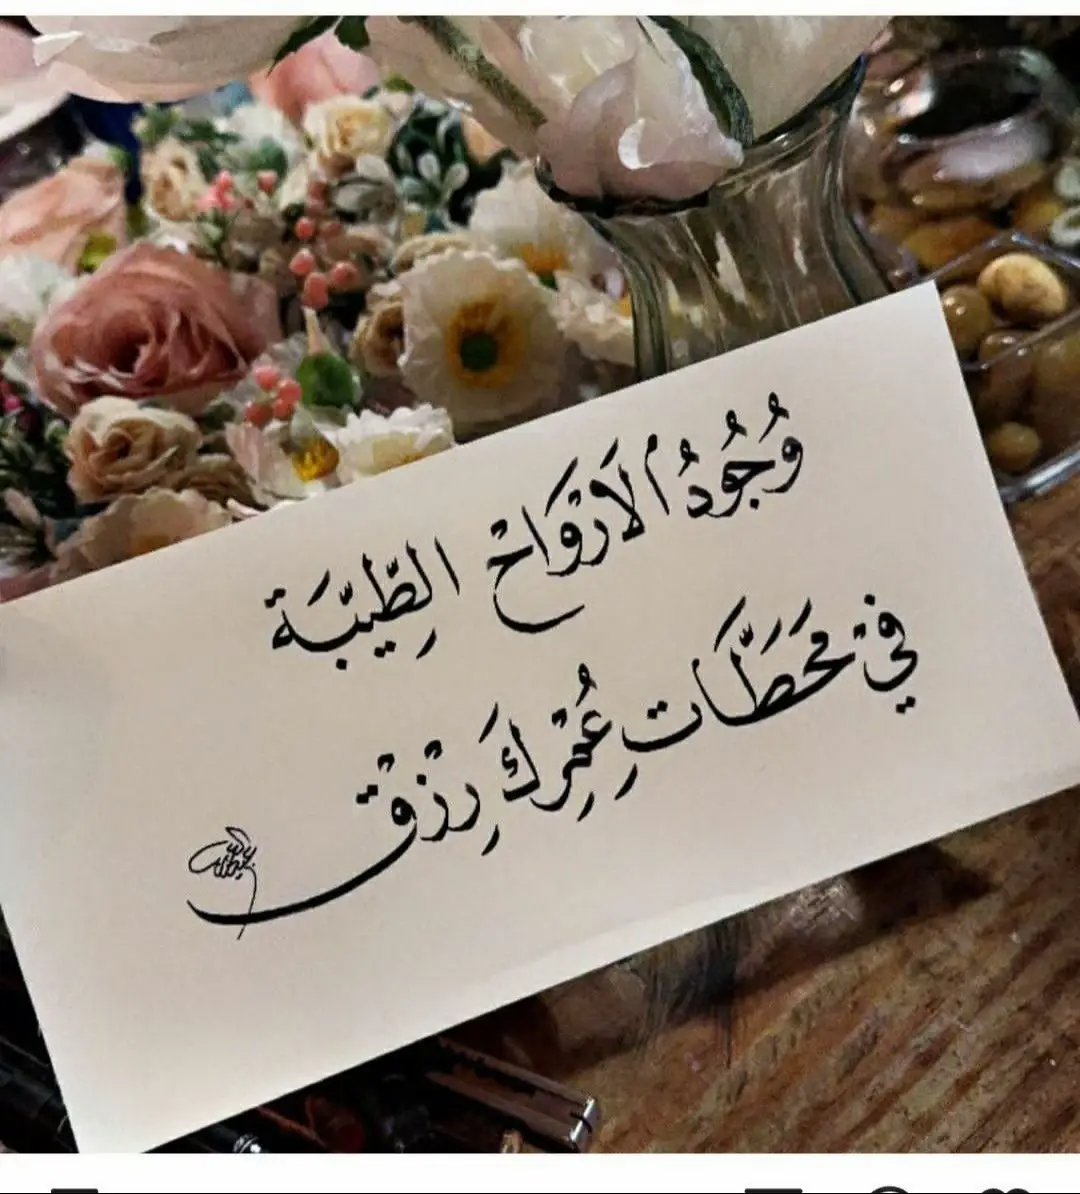 وُجُودُ الأَرْوَاحْ الطِّيِّبَة
فِيْ مَحَطَّاتِ عُمْرِكَ رِزْقْ